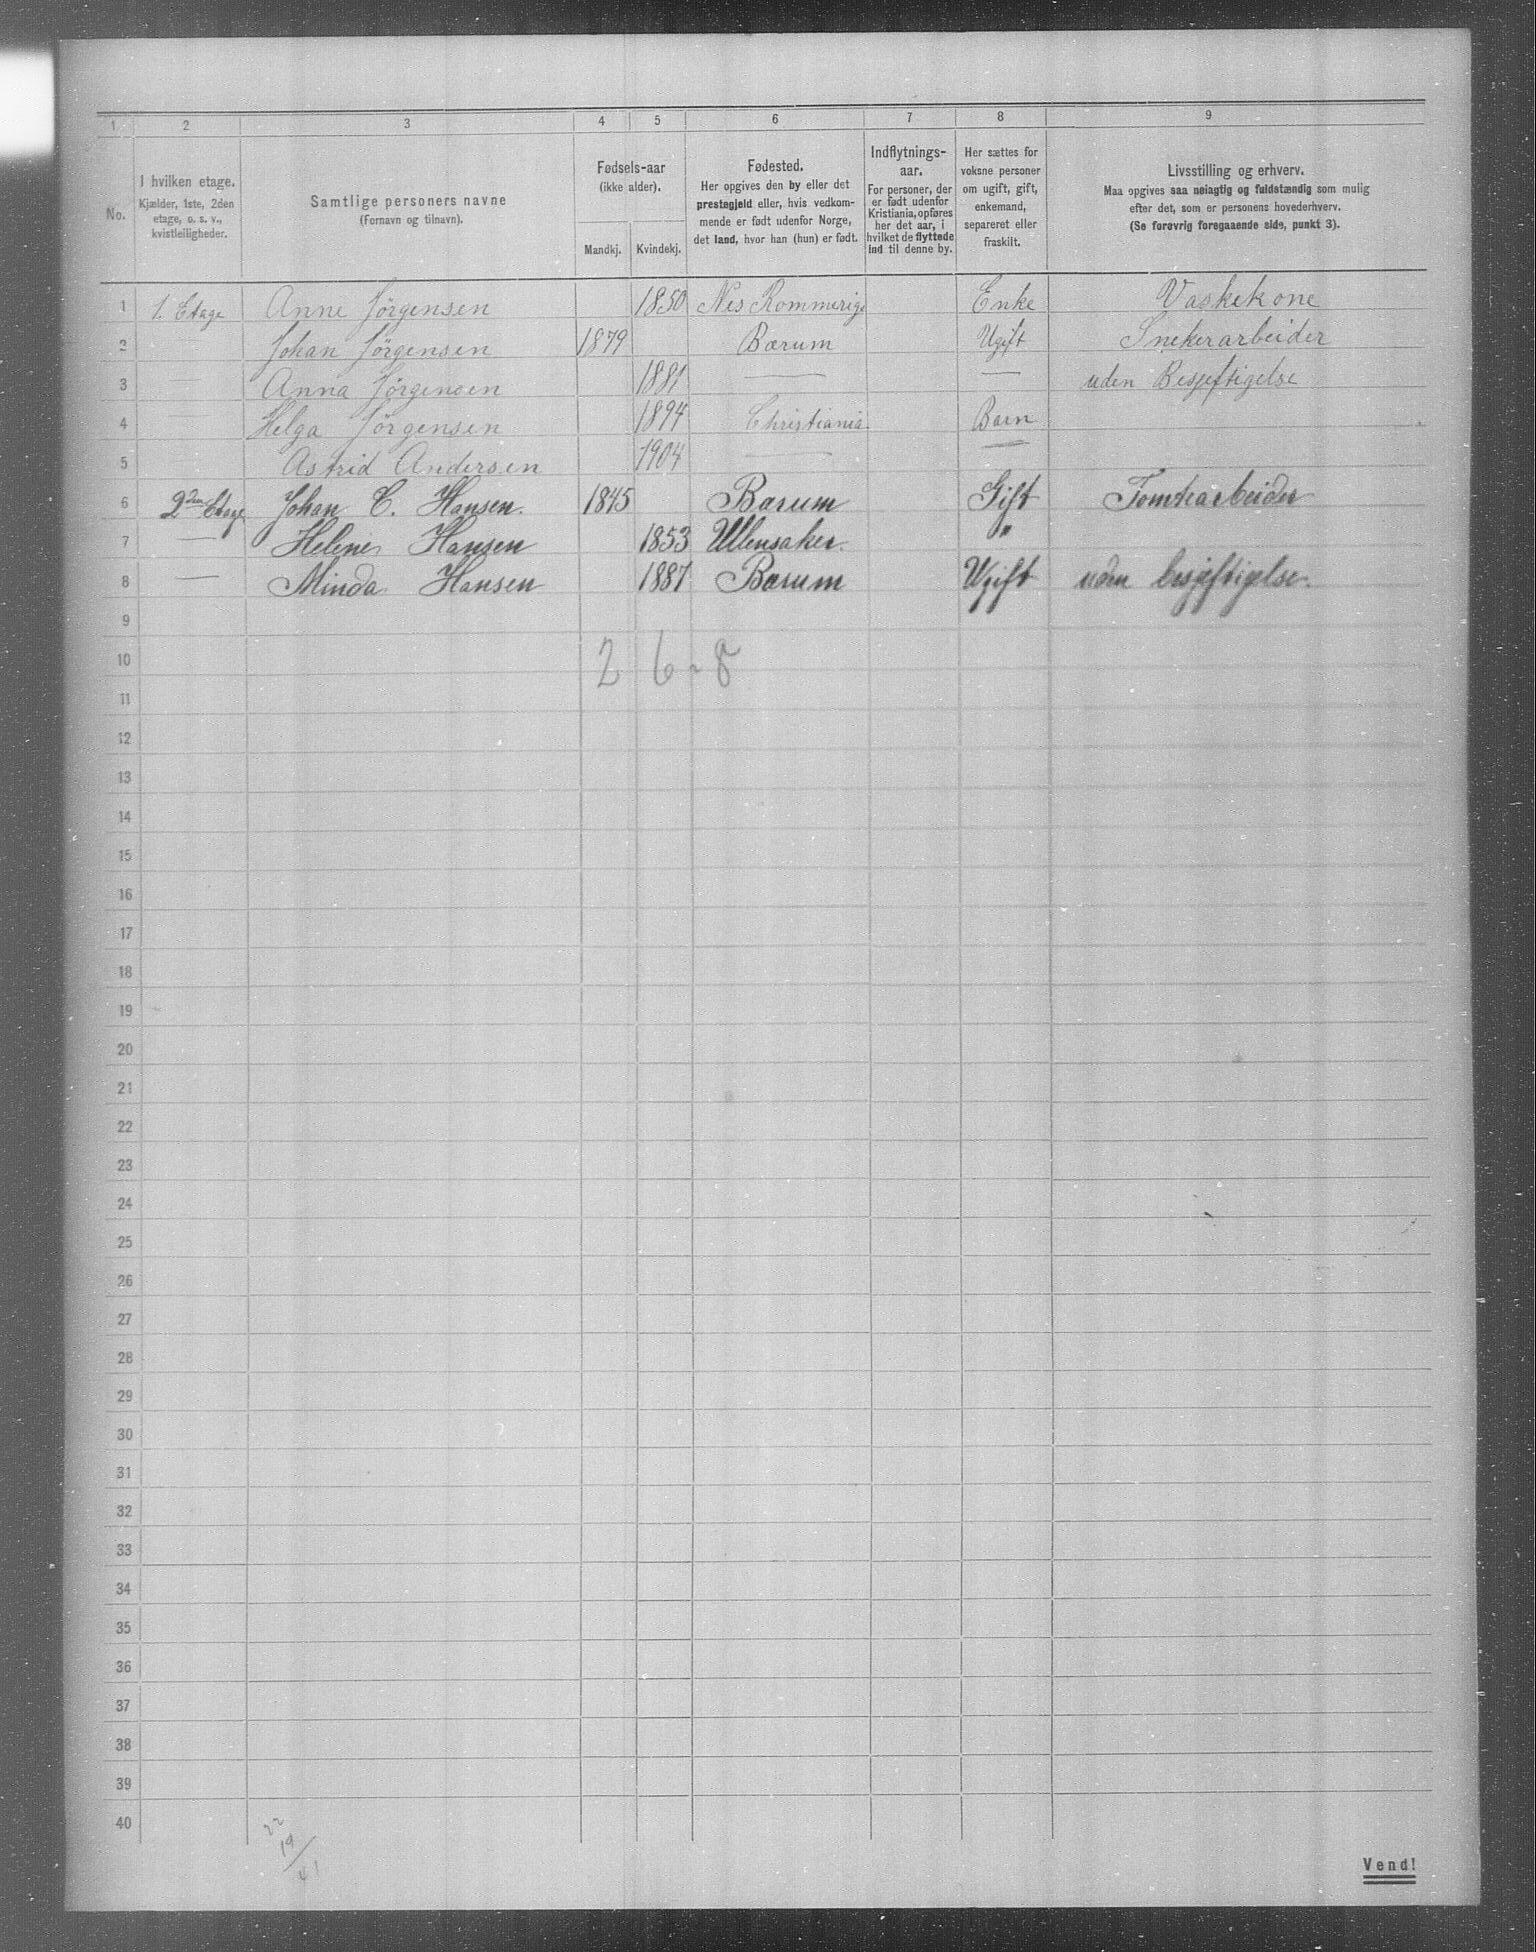 1 2 3 4 5 6 7 8 9
No.
I hvilken etage.
Kjælder, 1ste, 2den
etage, o. s. v.,
kvistleiligheder.
Samtlige personers navne
(Fornavn og tilnavn).
Fødsels-aar
(ikke alder).
Mandkj. Kvindekj.
Fødested.
Her opgives den by eller det
prestegjeld eller, hvis vedkom-
mende er født udenfor Norge,
det land, hvor han (hun) er født.
Indflytnings-
aar.
For personer, der
er født udenfor
Kristiania, opføres
her det aar, i
hvilket de flyttede
ind til denne by.
Her sættes for
voksne personer
om ugift, gift,
enkemand,
separeret eller
fraskilt.
Livsstilling og erhverv.
Maa opgives saa nøiagtig og fuldstændig som mulig
efter det, som er personens hovederhverv.
(Se forøvrig foregaaende side, punkt 3).
1 1. Etage Anne Jörgensen 1850 Nes Rommerige Enke Vaskekone
2 — Johan Jörgensen 1879 Bærum Ugift Snekerarbeider
3 — Anna Jörgensen 1881 — — uden Besjeftigelse
4 — Helga Jörgensen 1894 Christiania Barn
5 Astrid Andersen 1904 — —
6 2den Etage Johan C. Hansen. 1845 Bærum Gift Tomtearbeider
7 — Helene Hansen 1853 Ullensaker. "
8 — Minda Hansen 1887 Bærum Ugift uden besjeftigelse.
9
10 2 6 - 8
11
12
13
14
15
16
17
18
19
20
21
22
23
24
25
26
27
28
29
30
31
32
33
34
35
36
37
38
39
40
22
19
41
Vend!